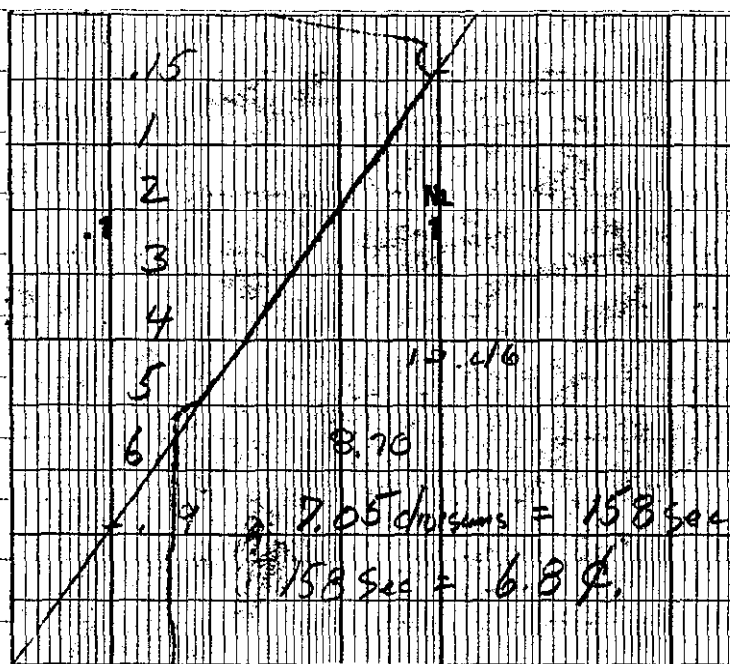 .15
1
2
.1
3
4
5
6
8.70
7.05 divisions = 158 sec
158 sec = 6.8 ¢.